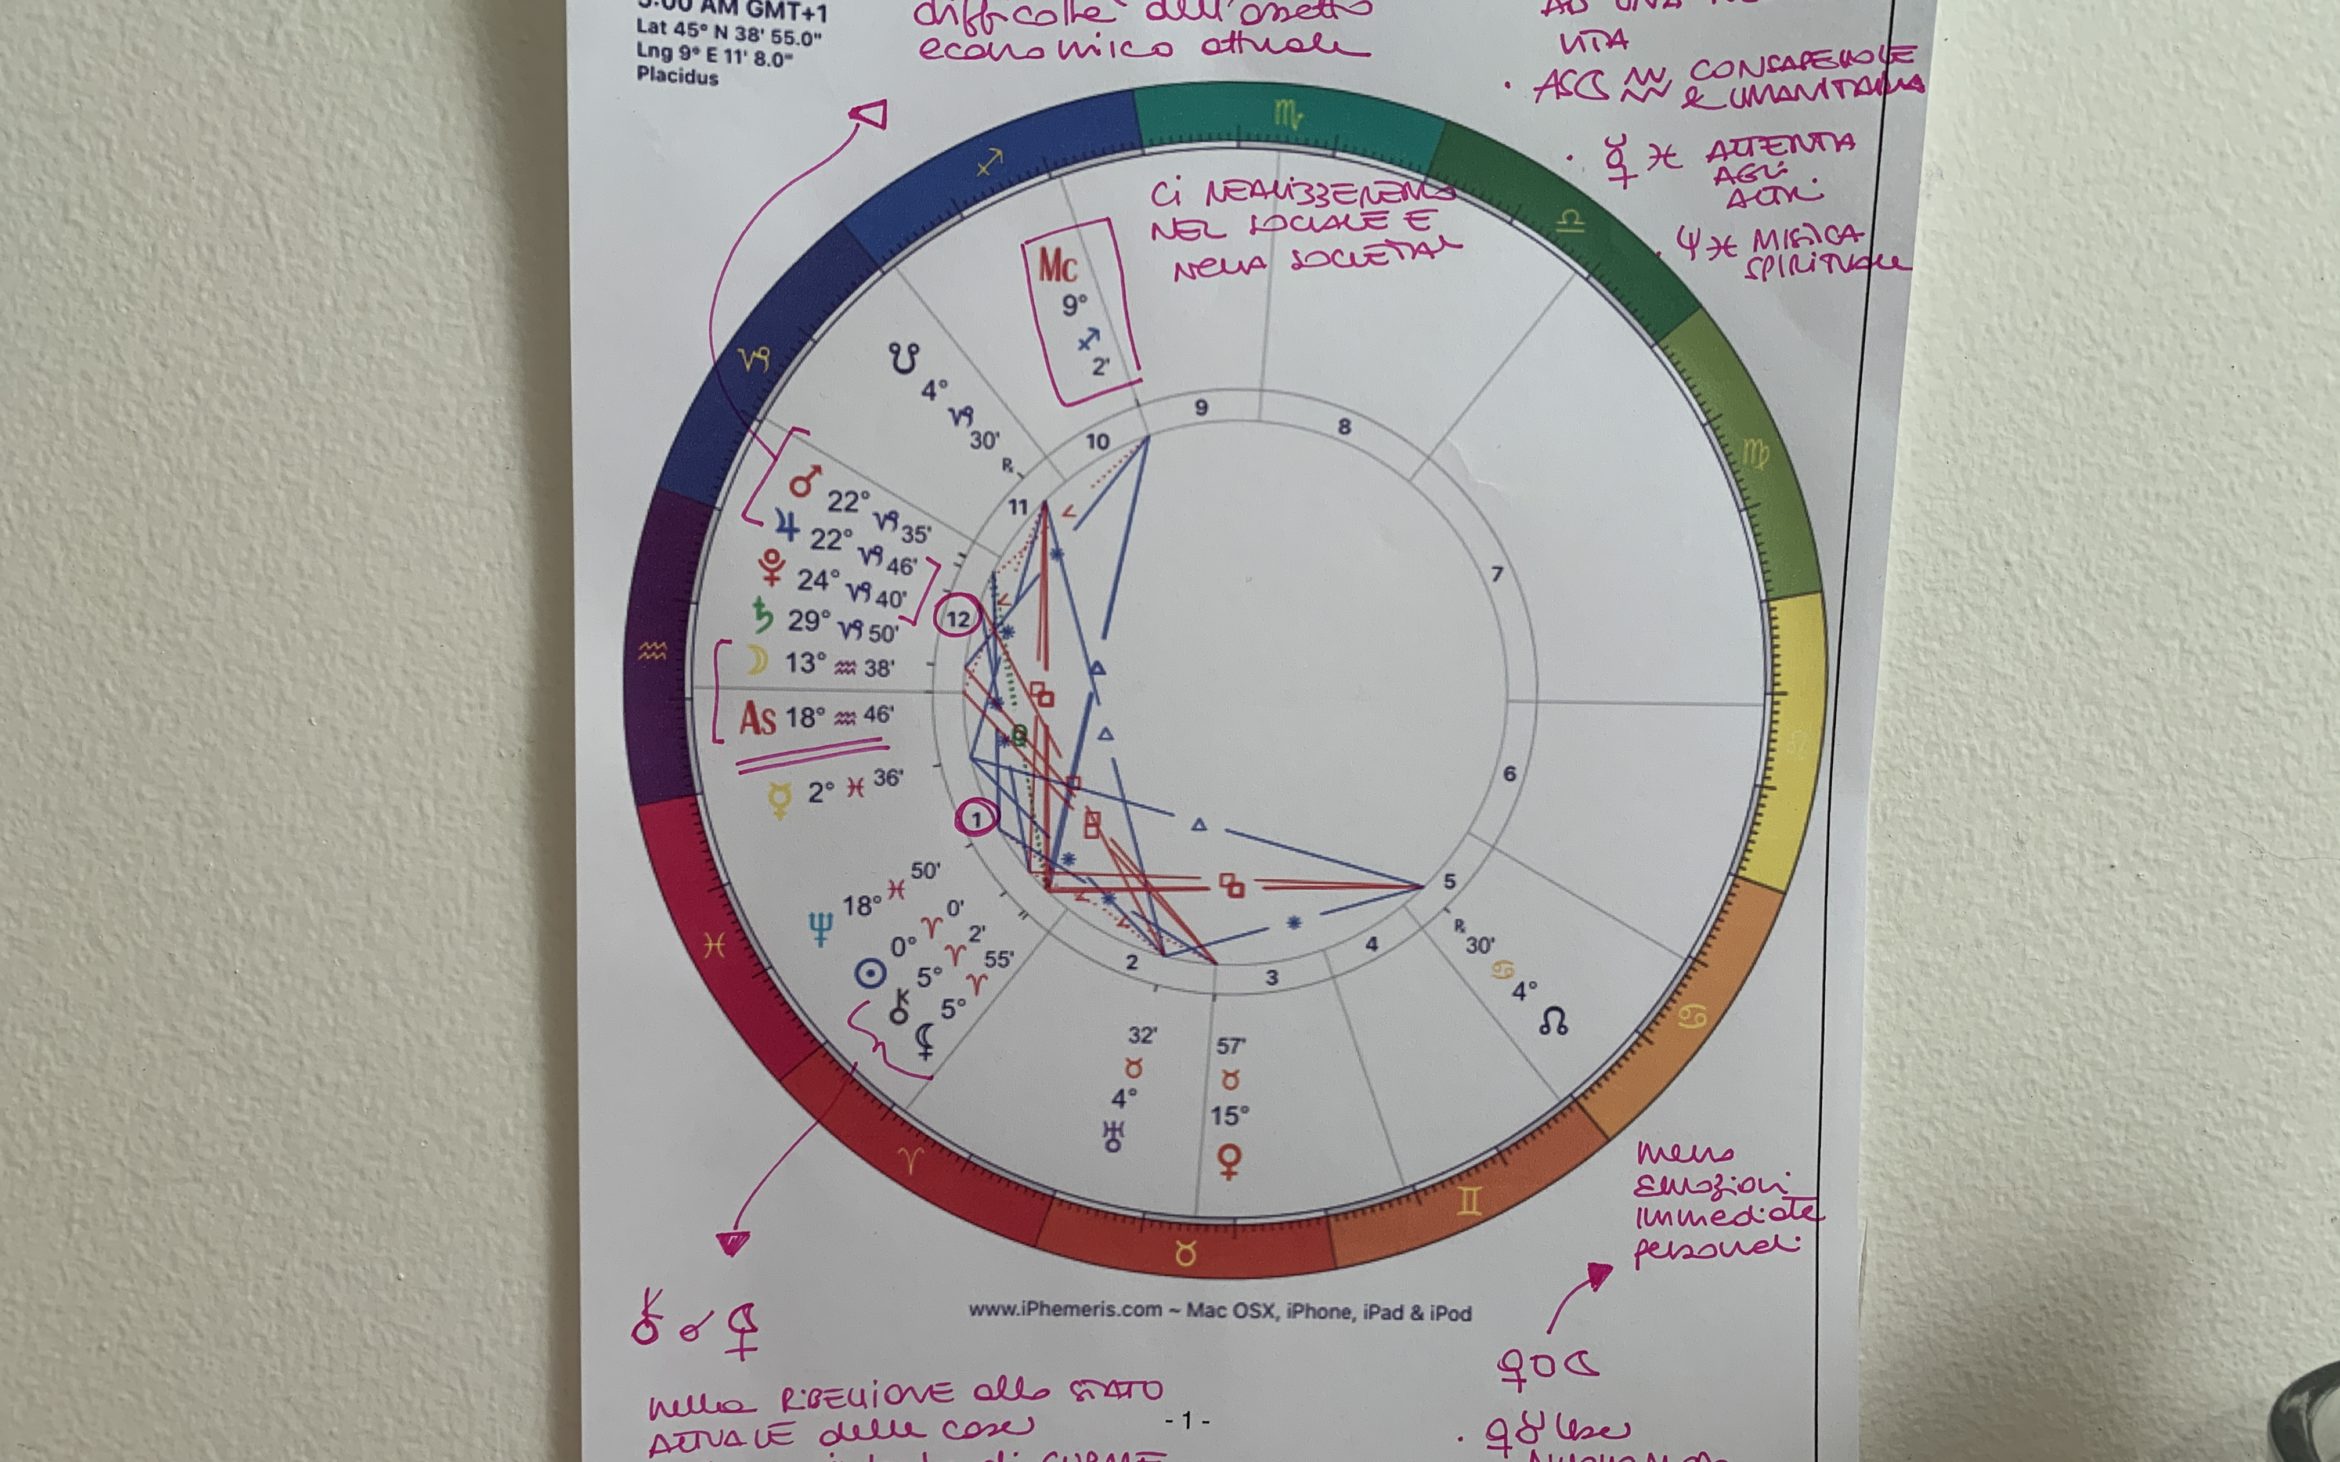 AM GMT+1
Lat 45° N 38' 55.0"
Lng 9° E 11' 8.0"
Placidus
difficoltà dell'assetto
economico attuale
AD UNA
VITA
· ASC ♒ CONSAPEVOLE
& UMANITARIA
· ☿ ♓ ATTENTA
AGLI
ALTRI
· Ψ ♓ MISTICA
SPIRITUALE
♏
♐
♎
♑
♍
♒
♓
♋
♈
♊
♉
CI REALIZZEREMO
NEL SOCIALE E
NELLA SOCIETÀ
Mc
9°
♐
2'
☋ 4° ♑ 30' ℞
♂ 22° ♑ 35'
♃ 22° ♑ 46'
♇ 24° ♑ 40'
♄ 29° ♑ 50'
☽ 13° ♒ 38'
As 18° ♒ 46'
☿ 2° ♓ 36'
♆ 18° ♓ 50'
☉ 0° ♈ 0'
⚷ 5° ♈ 2'
⚸ 5° ♈ 55'
32'
♉
4°
♅
57'
♉
15°
♀
℞ 30' ♋ 4° ☊
9
8
10
11
7
12
6
1
5
4
2
3
meno
emozioni
immediate
personali
www.iPhemeris.com ~ Mac OSX, iPhone, iPad & iPod
⚷ ☌ ⚸
♀ □ ☾
nella RIBELLIONE allo STATO
ATTUALE delle cose
- 1 -
· ♀ ♉